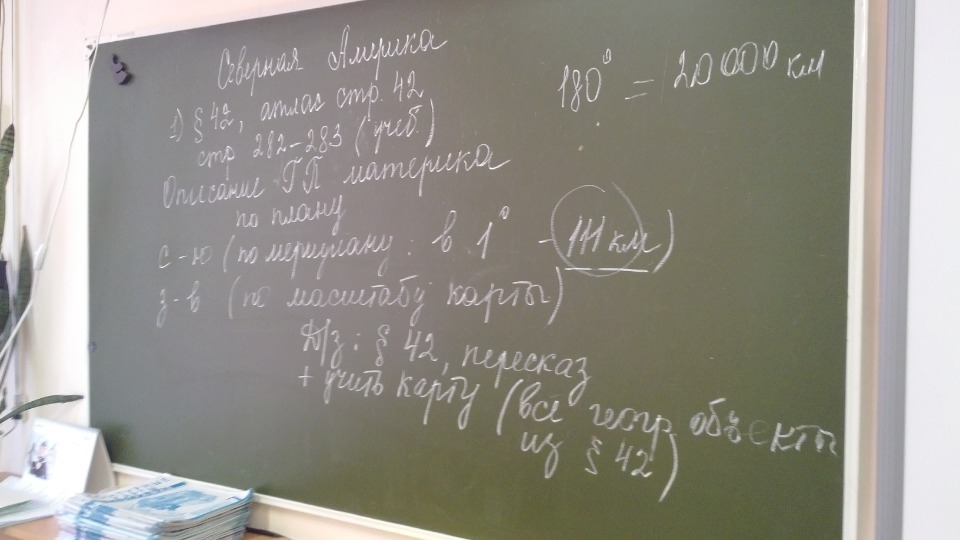 Северная Америка
1) § 42, атлас стр. 42
стр 282-283 (учеб.)
Описание ГП материка
по плану
с-ю (по меридиану: в 1° - 111 км)
з-в (по масштабу карты)
Д/з: § 42, пересказ
+ учить карту (все геогр. объекты
из § 42)
180° = 20 000 км